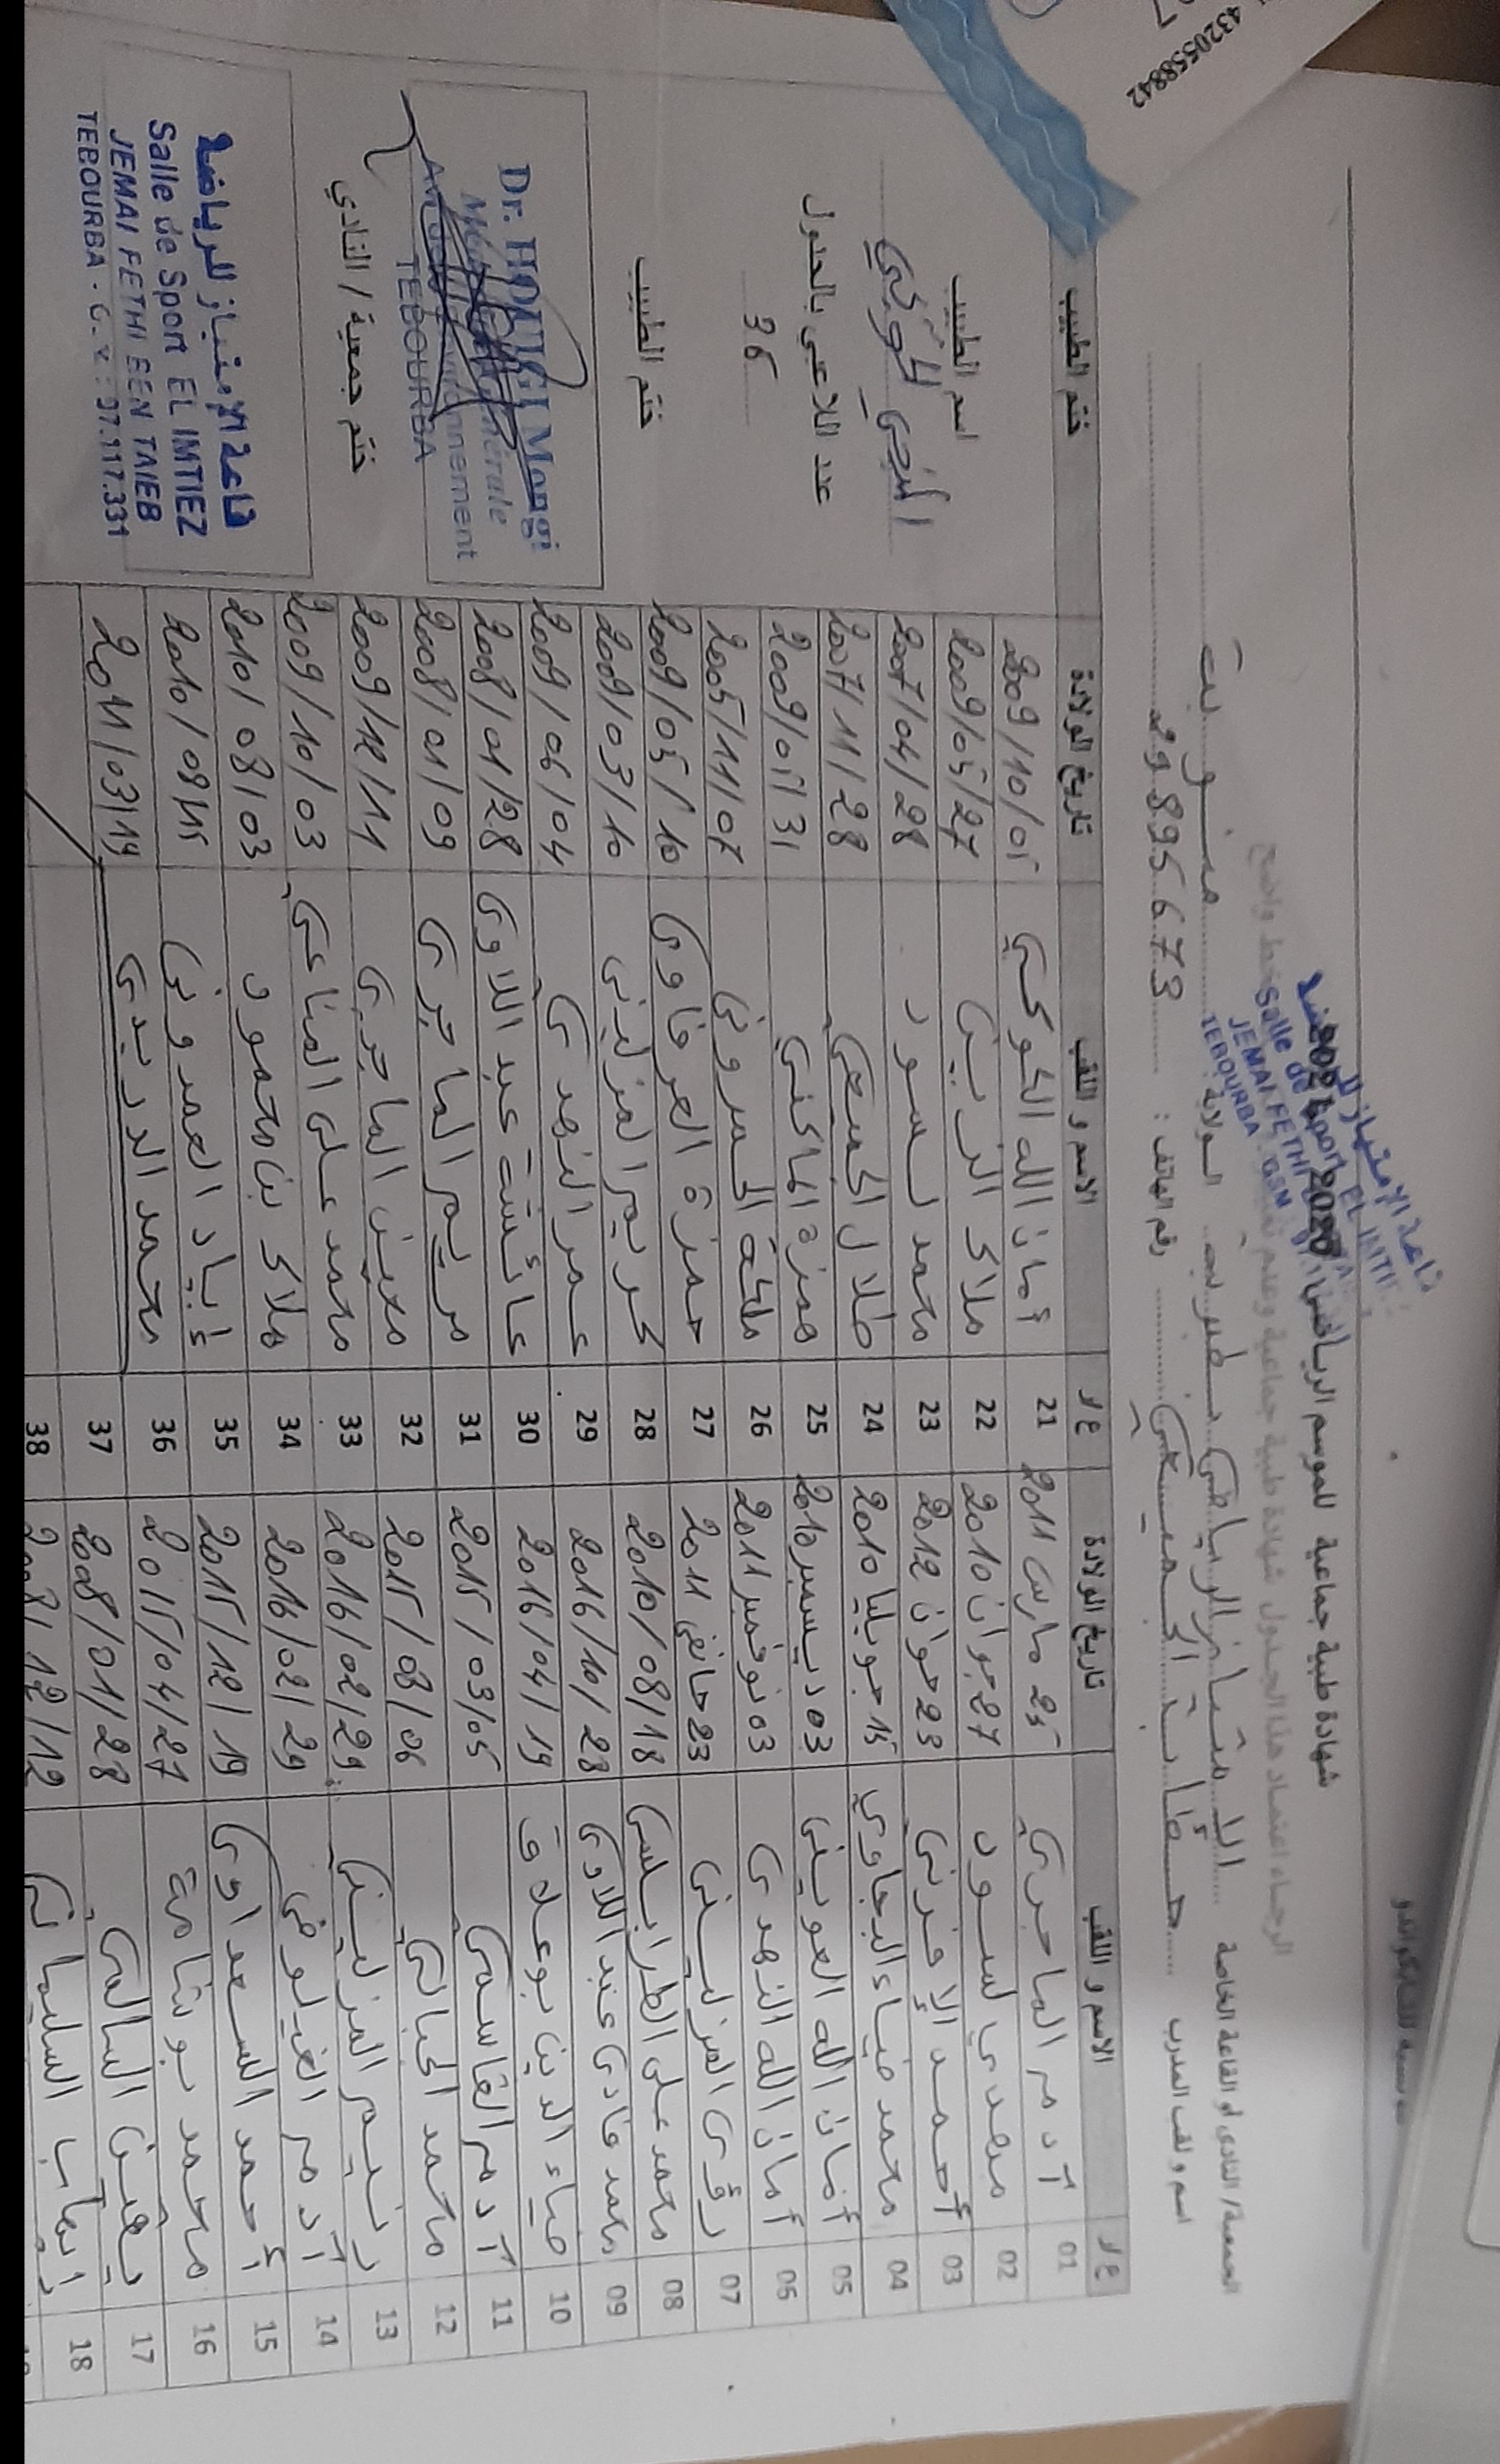 4320558842
شهادة طبية جماعية للموسم الرياضي 2020
الرجاء اعتماد هذا الجدول شهادة طبية جماعية وعدم
بخط واضح
قاعة الامتياز
Salle de Sport EL IMTI
JEMAI FETHI
TEBOURBA GSM
الجمعية/ النادي أو القاعة الخاصة الامتياز الرياضي بطبربة الولاية منوبة
اسم و لقب المدرب رقم الهاتف : 29895673
ع/د الاسم و اللقب تاريخ الولادة ع/د الاسم و اللقب تاريخ الولادة ختم الطبيب
01 آدم الماجري 25 مارس 2011 21 أمان الله الكوكي 2009/10/05
02 مهدي لسود 27 جوان 2010 22 ملاك الزديني 2009/05/27
03 أحمد 23 جوان 2012 23 محمد لسود 2007/04/28
04 محمد ضياء البجاوي 15 جويليا 2010 24 طلال الجميعي 2007/11/28
05 أمان الله العويني 03 ديسمبر 2010 25 حمزة الماكني 2009/01/31
06 أمان الله النهدي 03 نوفمبر 2011 26 2005/11/07
07 رؤى المزليني 23 جانفي 2011 27 حمزة العرفاوي 2009/05/10
08 محمد علي الطرابلسي 2010/08/18 28 كريم المزليني 2009/03/10
09 محمد فادي عبد اللاوي 2016/10/28 29 عمر النهدي 2009/06/04
10 ضياء الدين بوعلاق 2016/04/19 30 عائشة عبد اللاوي 2008/01/28
11 آدم القاسمي 2015/03/05 31 مريم الماجري 2008/01/09
12 محمد الجبالي 2015/08/06 32 معين الماجري 2009/12/11
13 نسيم المزليني 2016/02/29 33 محمد علي المناعي 2009/10/03
14 آدم الغيلوفي 2016/02/29 34 ملاك بن محمود 2010/08/03
15 أحمد السعداوي 2015/12/19 35 إياد الحمدوني 2010/08/15
16 محمد بوشامة 2015/04/27 36 محمد الدريدي 2011/03/19
17 يقين السالمي 2008/01/28 37
18 رايهاب السليماني 2008/12/12 38
اسم الطبيب
المنجي الهوكي
عدد اللاعبي بالجدول
36
ختم الطبيب
Dr. HOUIGI Mongi
Médecine Générale
Av. de l'Environnement
TEBOURBA
ختم جمعية / النادي
قاعة الامتياز للرياضة
Salle de Sport EL IMTIEZ
JEMAI FETHI BEN TAIEB
TEBOURBA - G.M : 97.117.331